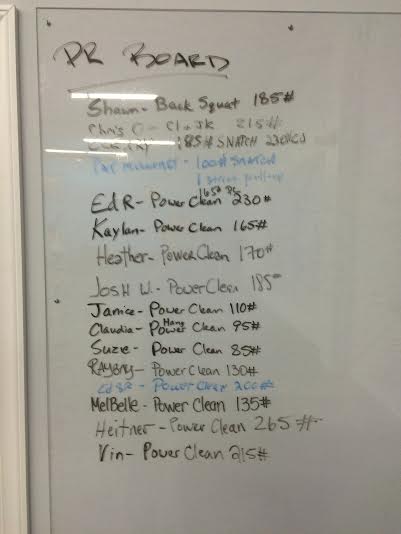 PR BOARD
Shawn - Back Squat 185#
Chris C - Cl + Jk 215#
185# SNATCH 230# C&J
- 100# SNATCH
1 strict pull-up
165# PC
Ed R - Power Clean 230#
Kaylan - Power Clean 165#
Heather - Power Clean 170#
Josh W. - Power Clean 185#
Janice - Power Clean 110#
Claudia - Power Clean 95#
Hang
Suzie - Power Clean 85#
RAYONY - Power Clean 130#
Ed SR - Power Clean 200#
MelBelle - Power Clean 135#
Heitner - Power Clean 265#
Vin - Power Clean 215#